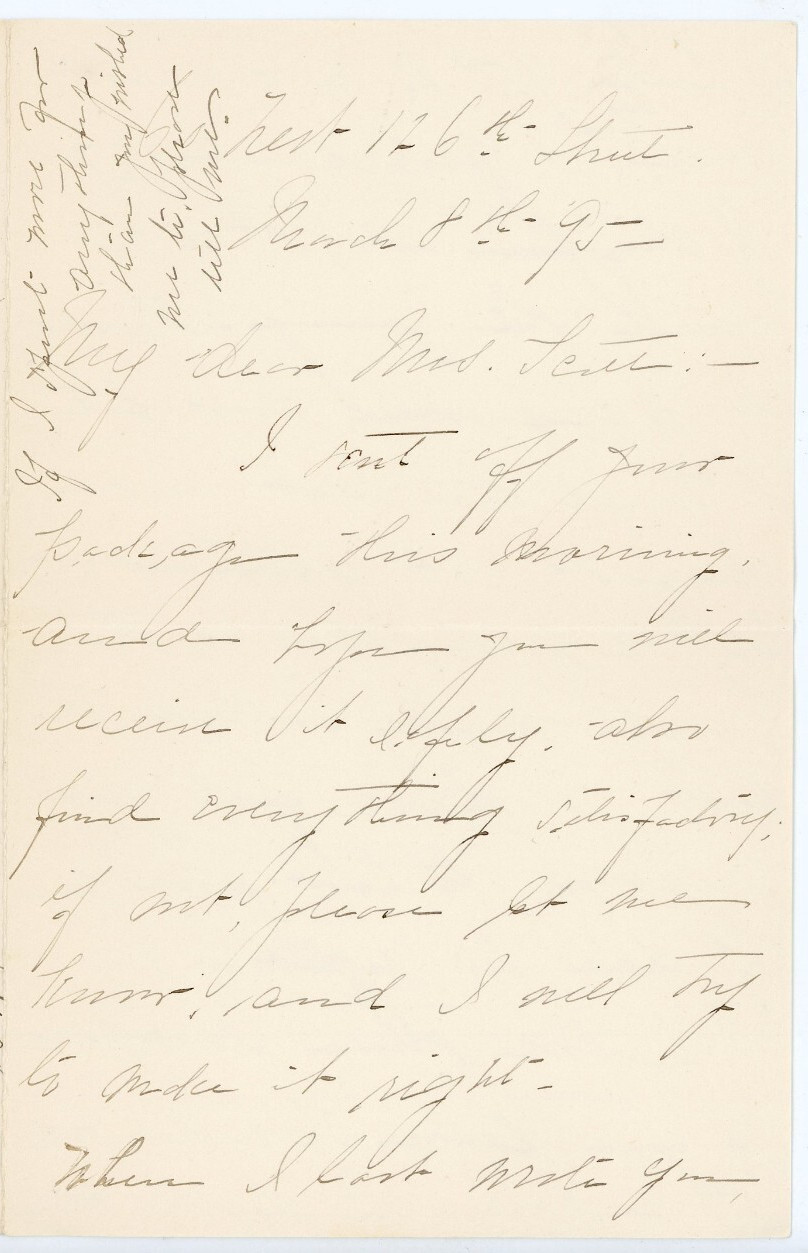 West 126th Street.
March 8th 95—
My dear Mrs. Scott:—
I sent off your
package this morning,
and hope you will
receive it safely, also
find everything satisfactory;
if not, please let me
know, and I will try
to make it right—
When I last wrote you,
If I spent more for
anything
than you wished
me to, please
tell me.